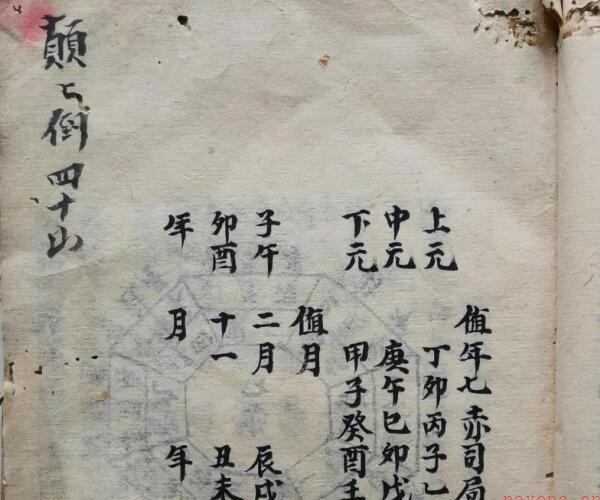 值年七赤司局
上元 丁卯丙子乙
中元 庚午己卯戊
下元 甲子癸酉壬
值月
子午 二月 辰戌
卯酉 十一 丑未
年 月 年
顛々倒四十山
navona.cn